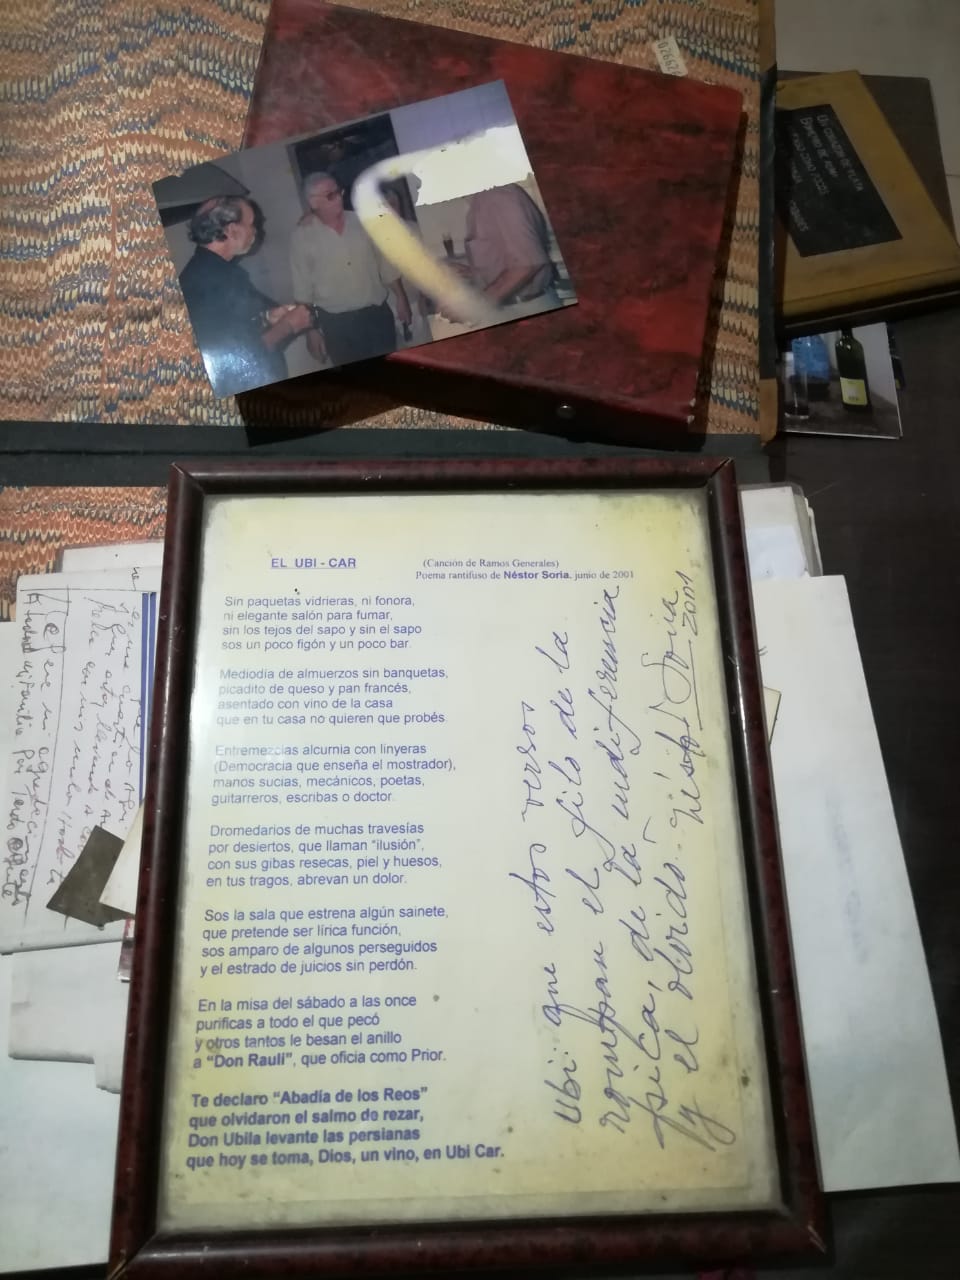 EL UBI - CAR
(Canción de Ramos Generales)
Poema rantifuso de Néstor Soria, junio de 2001
Sin paquetas vidrieras, ni fonora,
ni elegante salón para fumar,
sin los tejos del sapo y sin el sapo
sos un poco figón y un poco bar.
Mediodía de almuerzos sin banquetas,
picadito de queso y pan francés,
asentado con vino de la casa
que en tu casa no quieren que probés.
Entremezclas alcurnia con linyeras
(Democracia que enseña el mostrador),
manos sucias, mecánicos, poetas,
guitarreros, escribas o doctor.
Dromedarios de muchas travesías
por desiertos, que llaman "ilusión",
con sus gibas resecas, piel y huesos,
en tus tragos, abrevan un dolor.
Sos la sala que estrena algún sainete,
que pretende ser lírica función,
sos amparo de algunos perseguidos
y el estrado de juicios sin perdón.
En la misa del sábado a las once
purificas a todo el que pecó
y otros tantos le besan el anillo
a "Don Rauli", que oficia como Prior.
Te declaro "Abadía de los Reos"
que olvidaron el salmo de rezar,
Don Ubila levante las persianas
que hoy se toma, Dios, un vino, en Ubi Car.
Ubi que estos versos
rompan el filo de la
de la indiferencia
y el olvido... Néstor Soria
2001